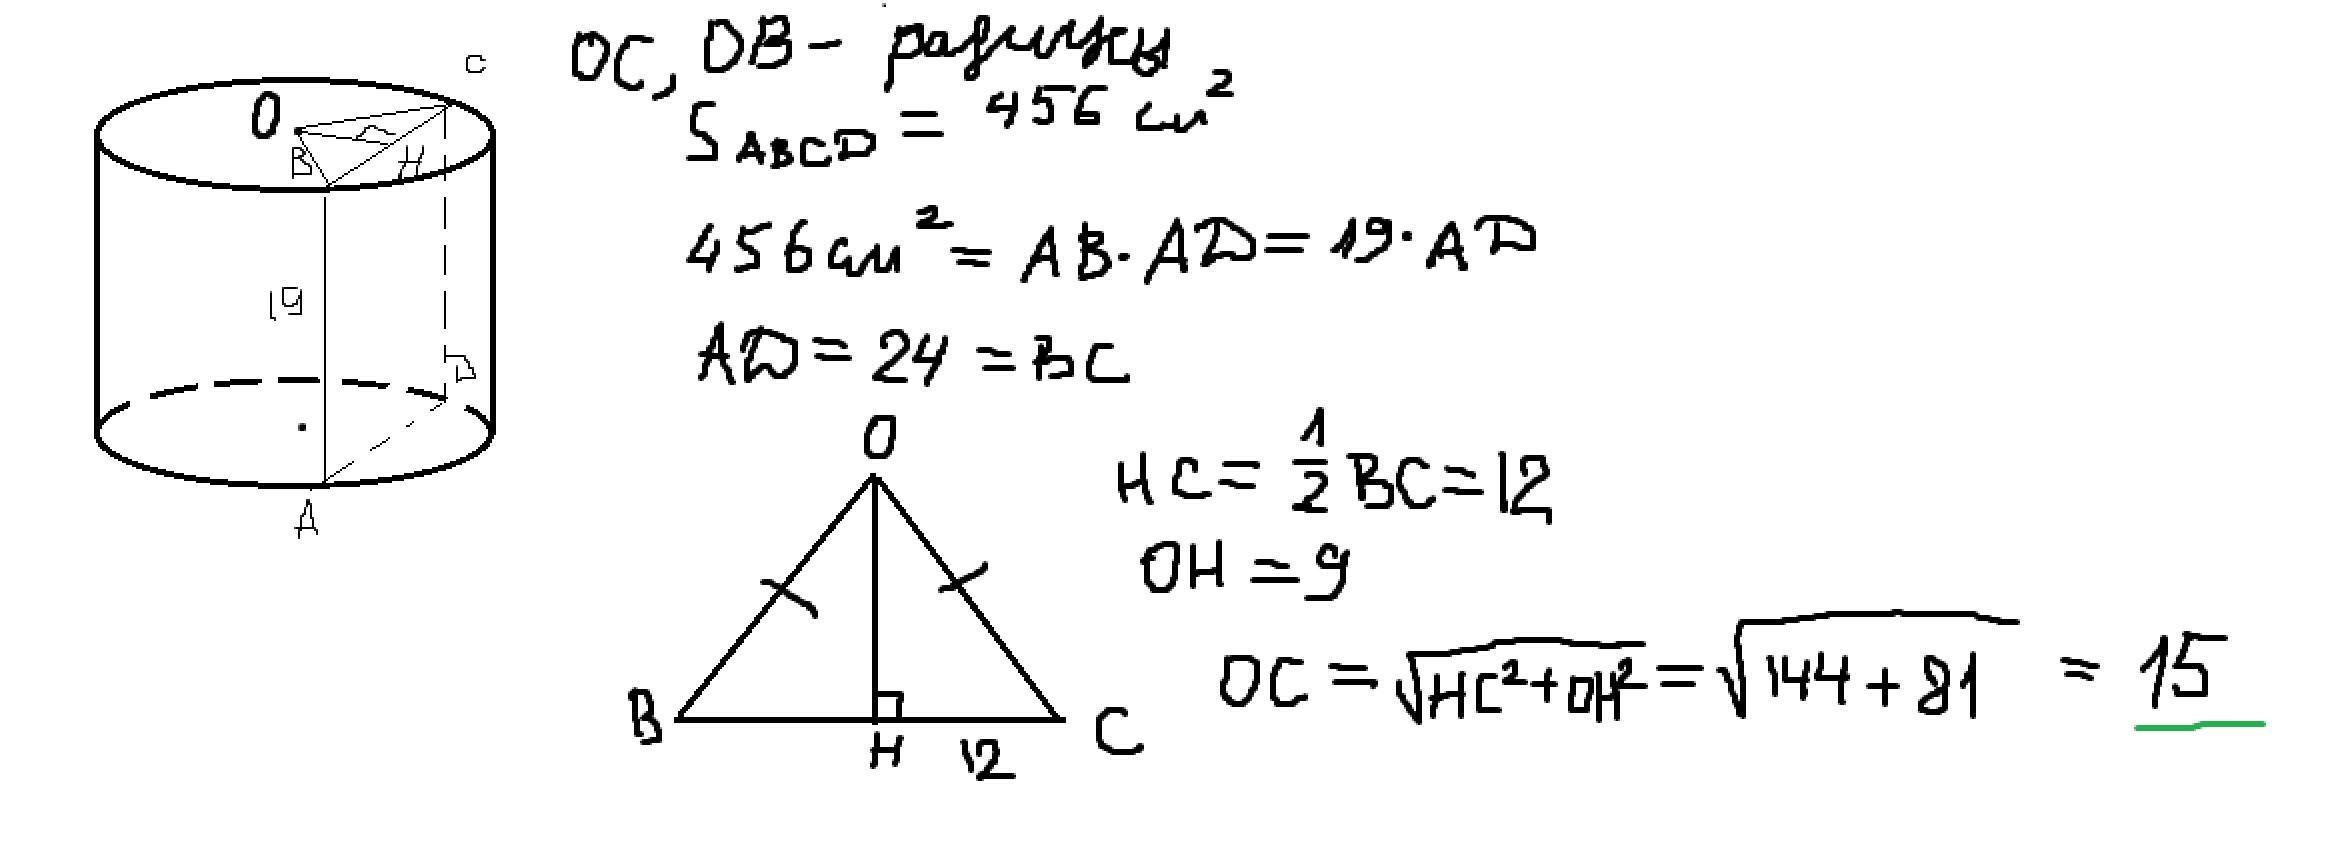 O
C
B
H
19
D
A
OC, OB - радиусы
S ABCD = 456 см²
456 см² = AB · AD = 19 · AD
AD = 24 = BC
O
B
H
12
C
HC = 1/2 BC = 12
OH = 9
OC = √HC²+OH² = √144 + 81 = 15